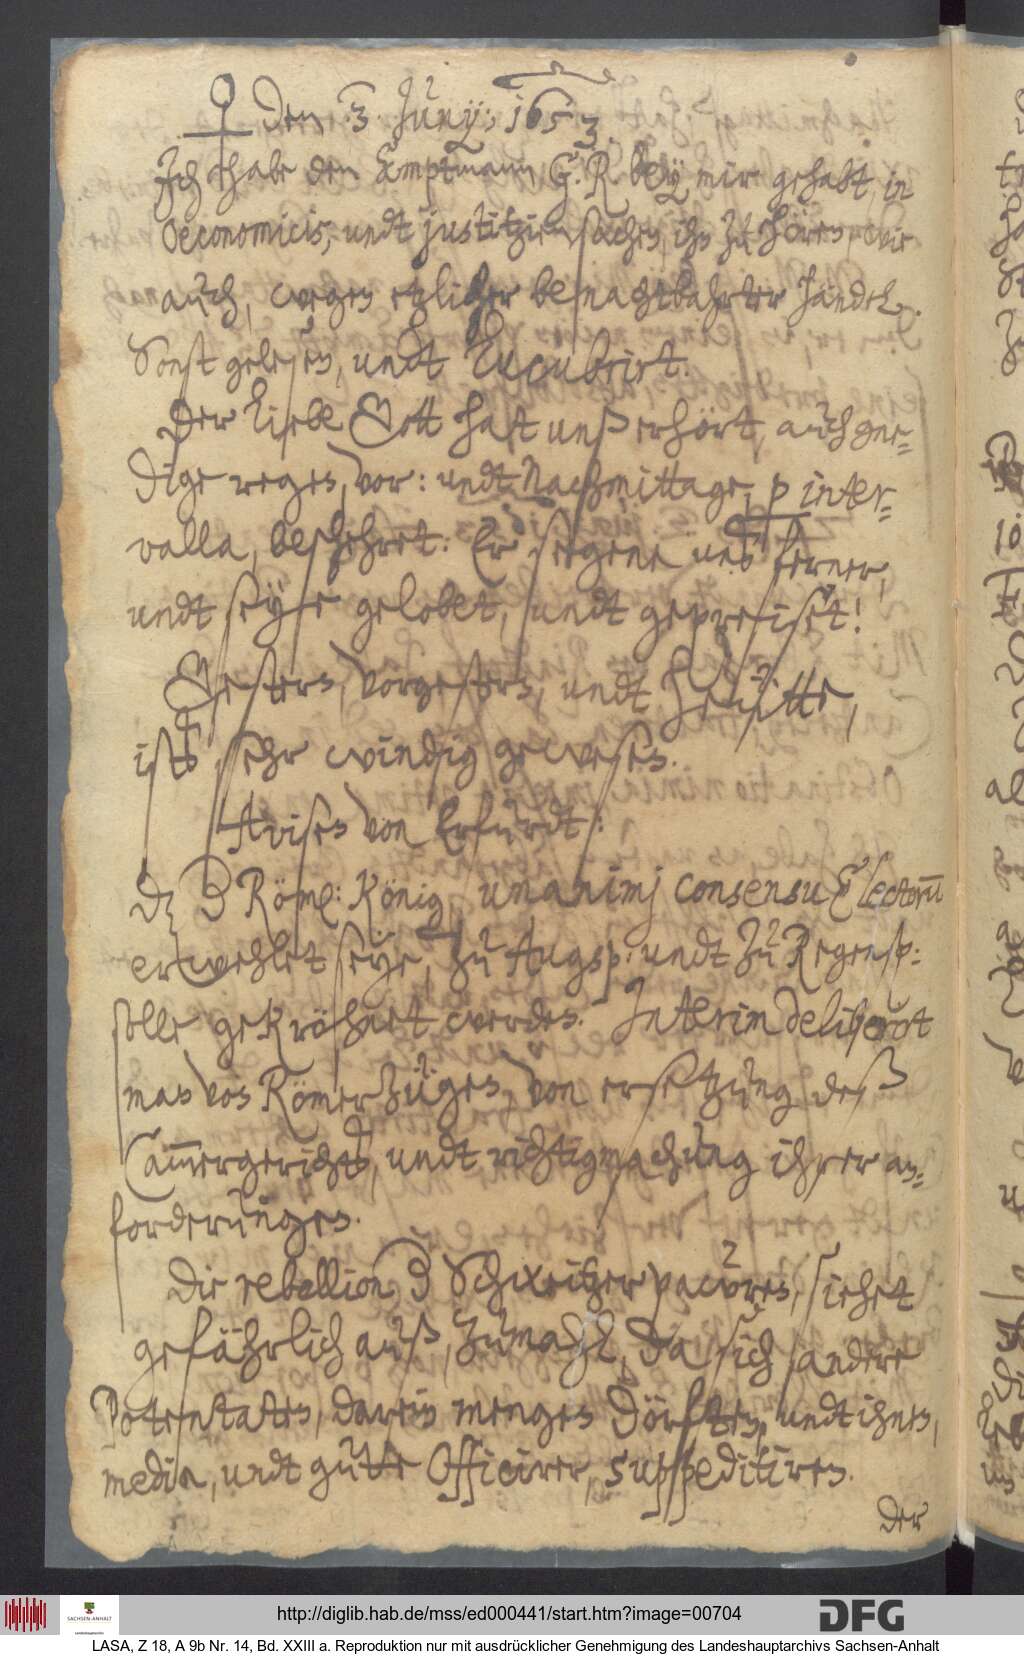 ♀ den 3. Junÿ: 1653.
Ich habe den Amptmann G. R. beÿ mir gehabt, in
Oeconomicis, undt justitzien sachen, ihn zu hören, wie
auch, wegen etzlicher benachtbahrter händel.
Sonst gelesen, undt lucubrirt.
Der liebe Gott hatt unß erhört, auch gne=
dige regen, vor: undt Nachmittage, p inter=
valla, beschehret: Er segene unß ferner,
undt seye gelobet, undt gepreiset!
Gestern, vorgestern, undt heütte,
ists sehr windig gewesen.
Avisen von Erfurdt:
Röml: König, unanimj consensu Electorū
erwehlet seye, zu Augsp: undt zu Regensp:
solle gekröhnet werden. Interim deliberirt
man von Römerzügen, von ersetzung deß
Cam̄ergerichts, undt richtigmachung ihrer an=
forderungen.
Die rebellion Schweitzer pawren, siehet
gefährlich auß, zumahl, da sich andere
Potentaten, darein mengen dörften, undt ihnen,
media, undt gute Officirer, suppeditiren.
der
http://diglib.hab.de/mss/ed000441/start.htm?image=00704
SACHSEN-ANHALT
DFG
LASA, Z 18, A 9b Nr. 14, Bd. XXIII a. Reproduktion nur mit ausdrücklicher Genehmigung des Landeshauptarchivs Sachsen-Anhalt